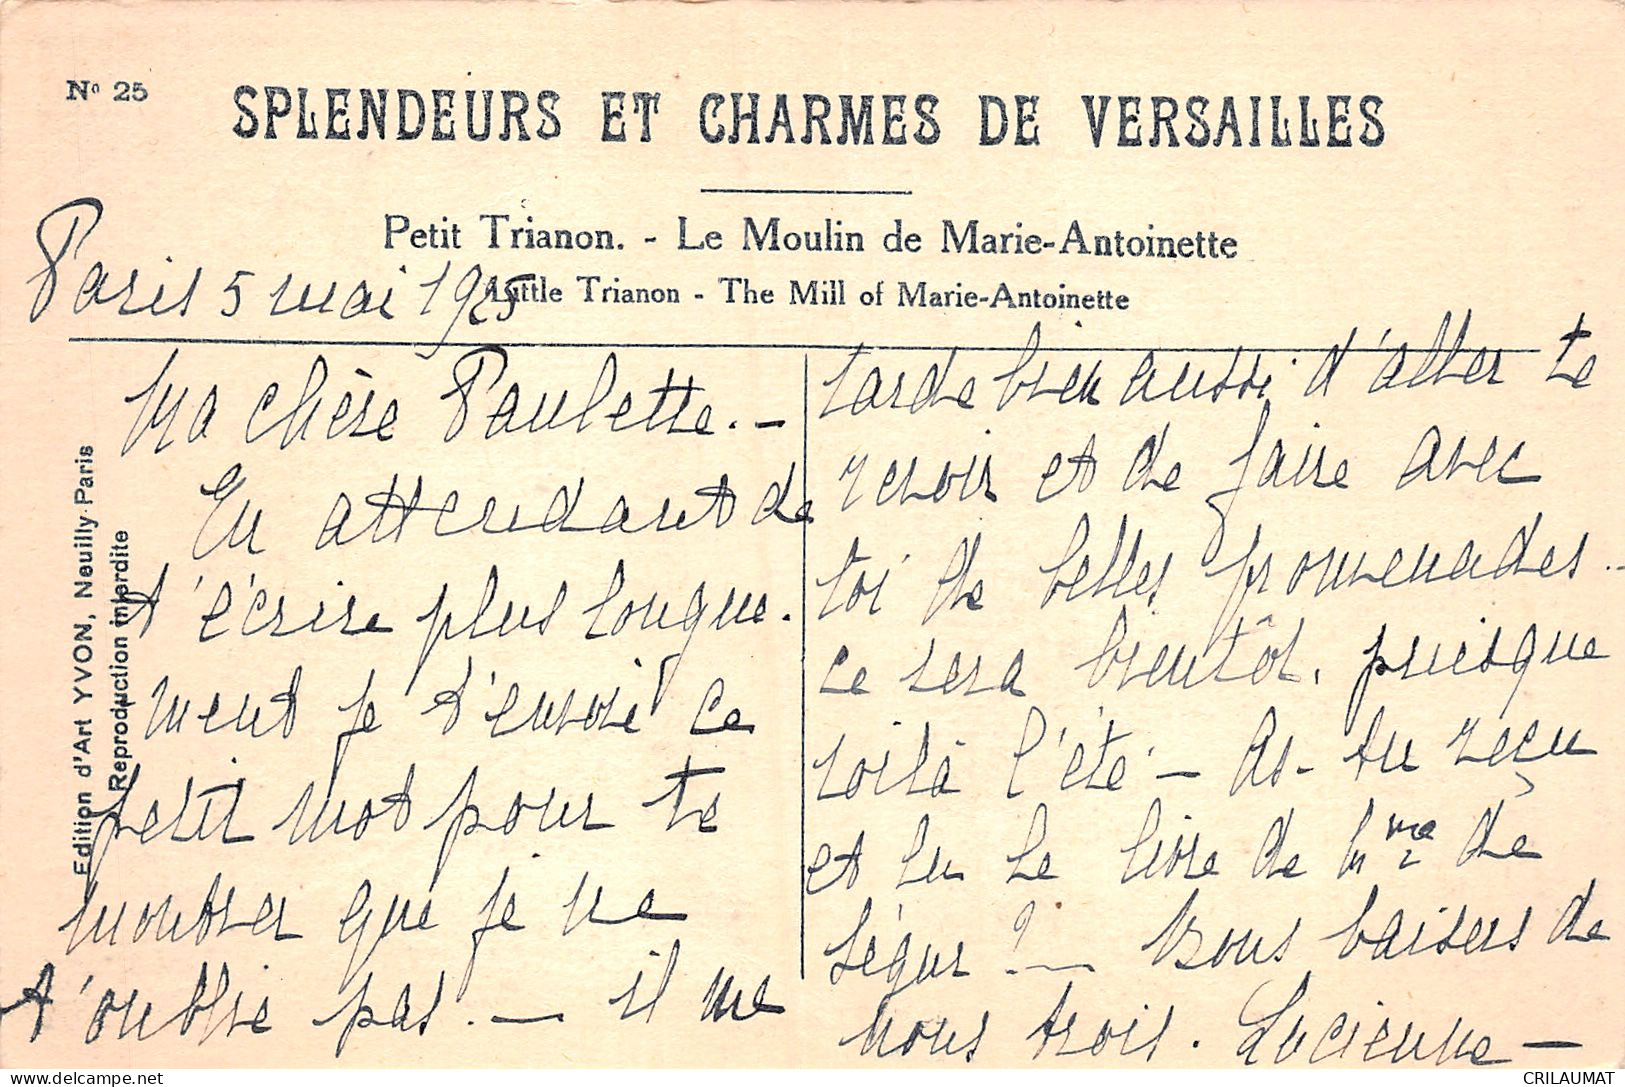 Nº 25
SPLENDEURS ET CHARMES DE VERSAILLES
Petit Trianon. - Le Moulin de Marie-Antoinette
Little Trianon - The Mill of Marie-Antoinette
Paris 5 mai 1925
Ma chère Paulette. —
En attendant de
t'écrire plus longue.
ment je t'envoie ce
petit mot pour te
montrer que je ne
t'oublie pas. — il me
tarde bien aussi d'aller te
revoir et de faire avec
toi de belles promenades.
ce sera bientôt, puisque
voilà l'été — As-tu reçu
et lu le livre de Mme de
Ségur ? — Bons baisers de
nous trois. Lucienne —
Edition d'Art YVON, Neuilly-Paris
Reproduction interdite
CRILAUMAT